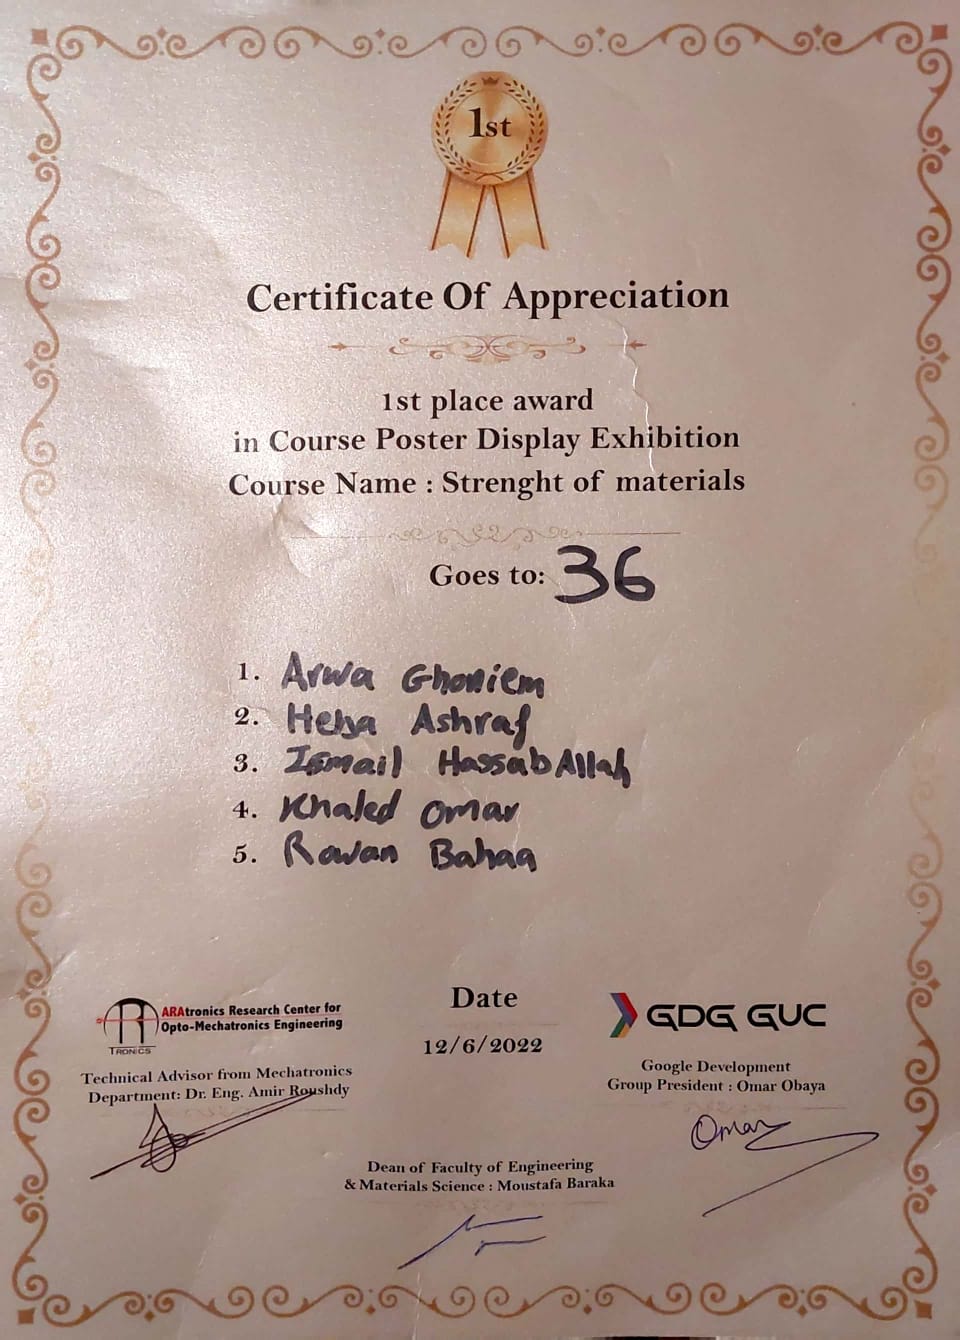 1st
Certificate Of Appreciation
1st place award
in Course Poster Display Exhibition
Course Name : Strenght of materials
Goes to: 36
1. Arwa Ghoniem
2. Heba Ashraf
3. Ismail HassabAllah
4. Khaled Omar
5. Rowan Bahaa
ARAtronics Research Center for
Opto-Mechatronics Engineering
TRONICS
Technical Advisor from Mechatronics
Department: Dr. Eng. Amir Roushdy
Date
12/6/2022
GDG GUC
Google Development
Group President : Omar Obaya
Omar
Dean of Faculty of Engineering
& Materials Science : Moustafa Baraka